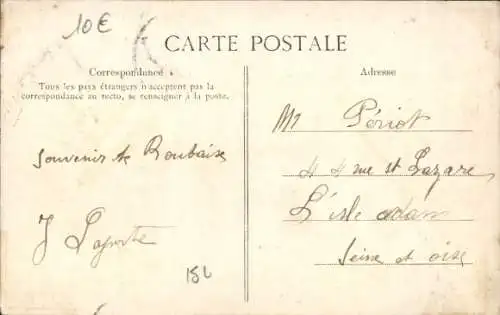 10€
CARTE POSTALE
Correspondance
Tous les pays étrangers n'acceptent pas la
correspondance au recto, se renseigner à la poste.
Souvenir de Roubaix
J Laporte
151
Adresse
Mr Périot
44 rue st Lazare
L'isle adam
Seine et oise